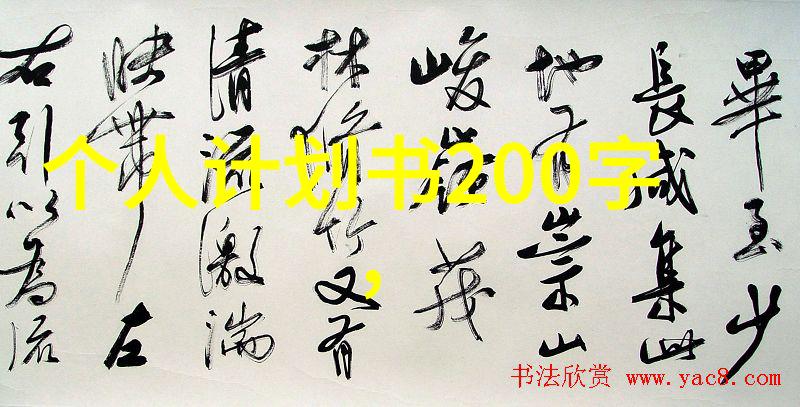 畢至少
長咸集此
地有崇山
峻嶺茂
林脩竹又有
清流激湍
映帶左
右引以為流
个人计划书200字
，
书法欣赏 www.yac8.com